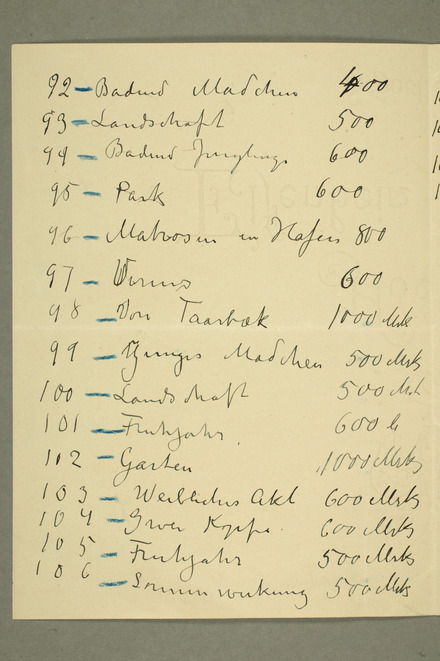 92 - Badend Madchen 400
93 - Landschaft 500
94 - Badend Junglings 600
95 - Park 600
96 - Matrosen in Hafen 800
97 - 600
98 - Von Taarbæk 1000 Mrk
99 - Junges Madchen 500 Mrk
100 - Landschaft 500 Mrk
101 - Fruhjahr 600
102 - Garten 1000 Mrk
103 - Weibliches Akt 600 Mrk
104 - Zwei Kopfe 600 Mrk
105 - Fruhjahr 500 Mrk
106 - Sonnenwirkung 500 Mrk